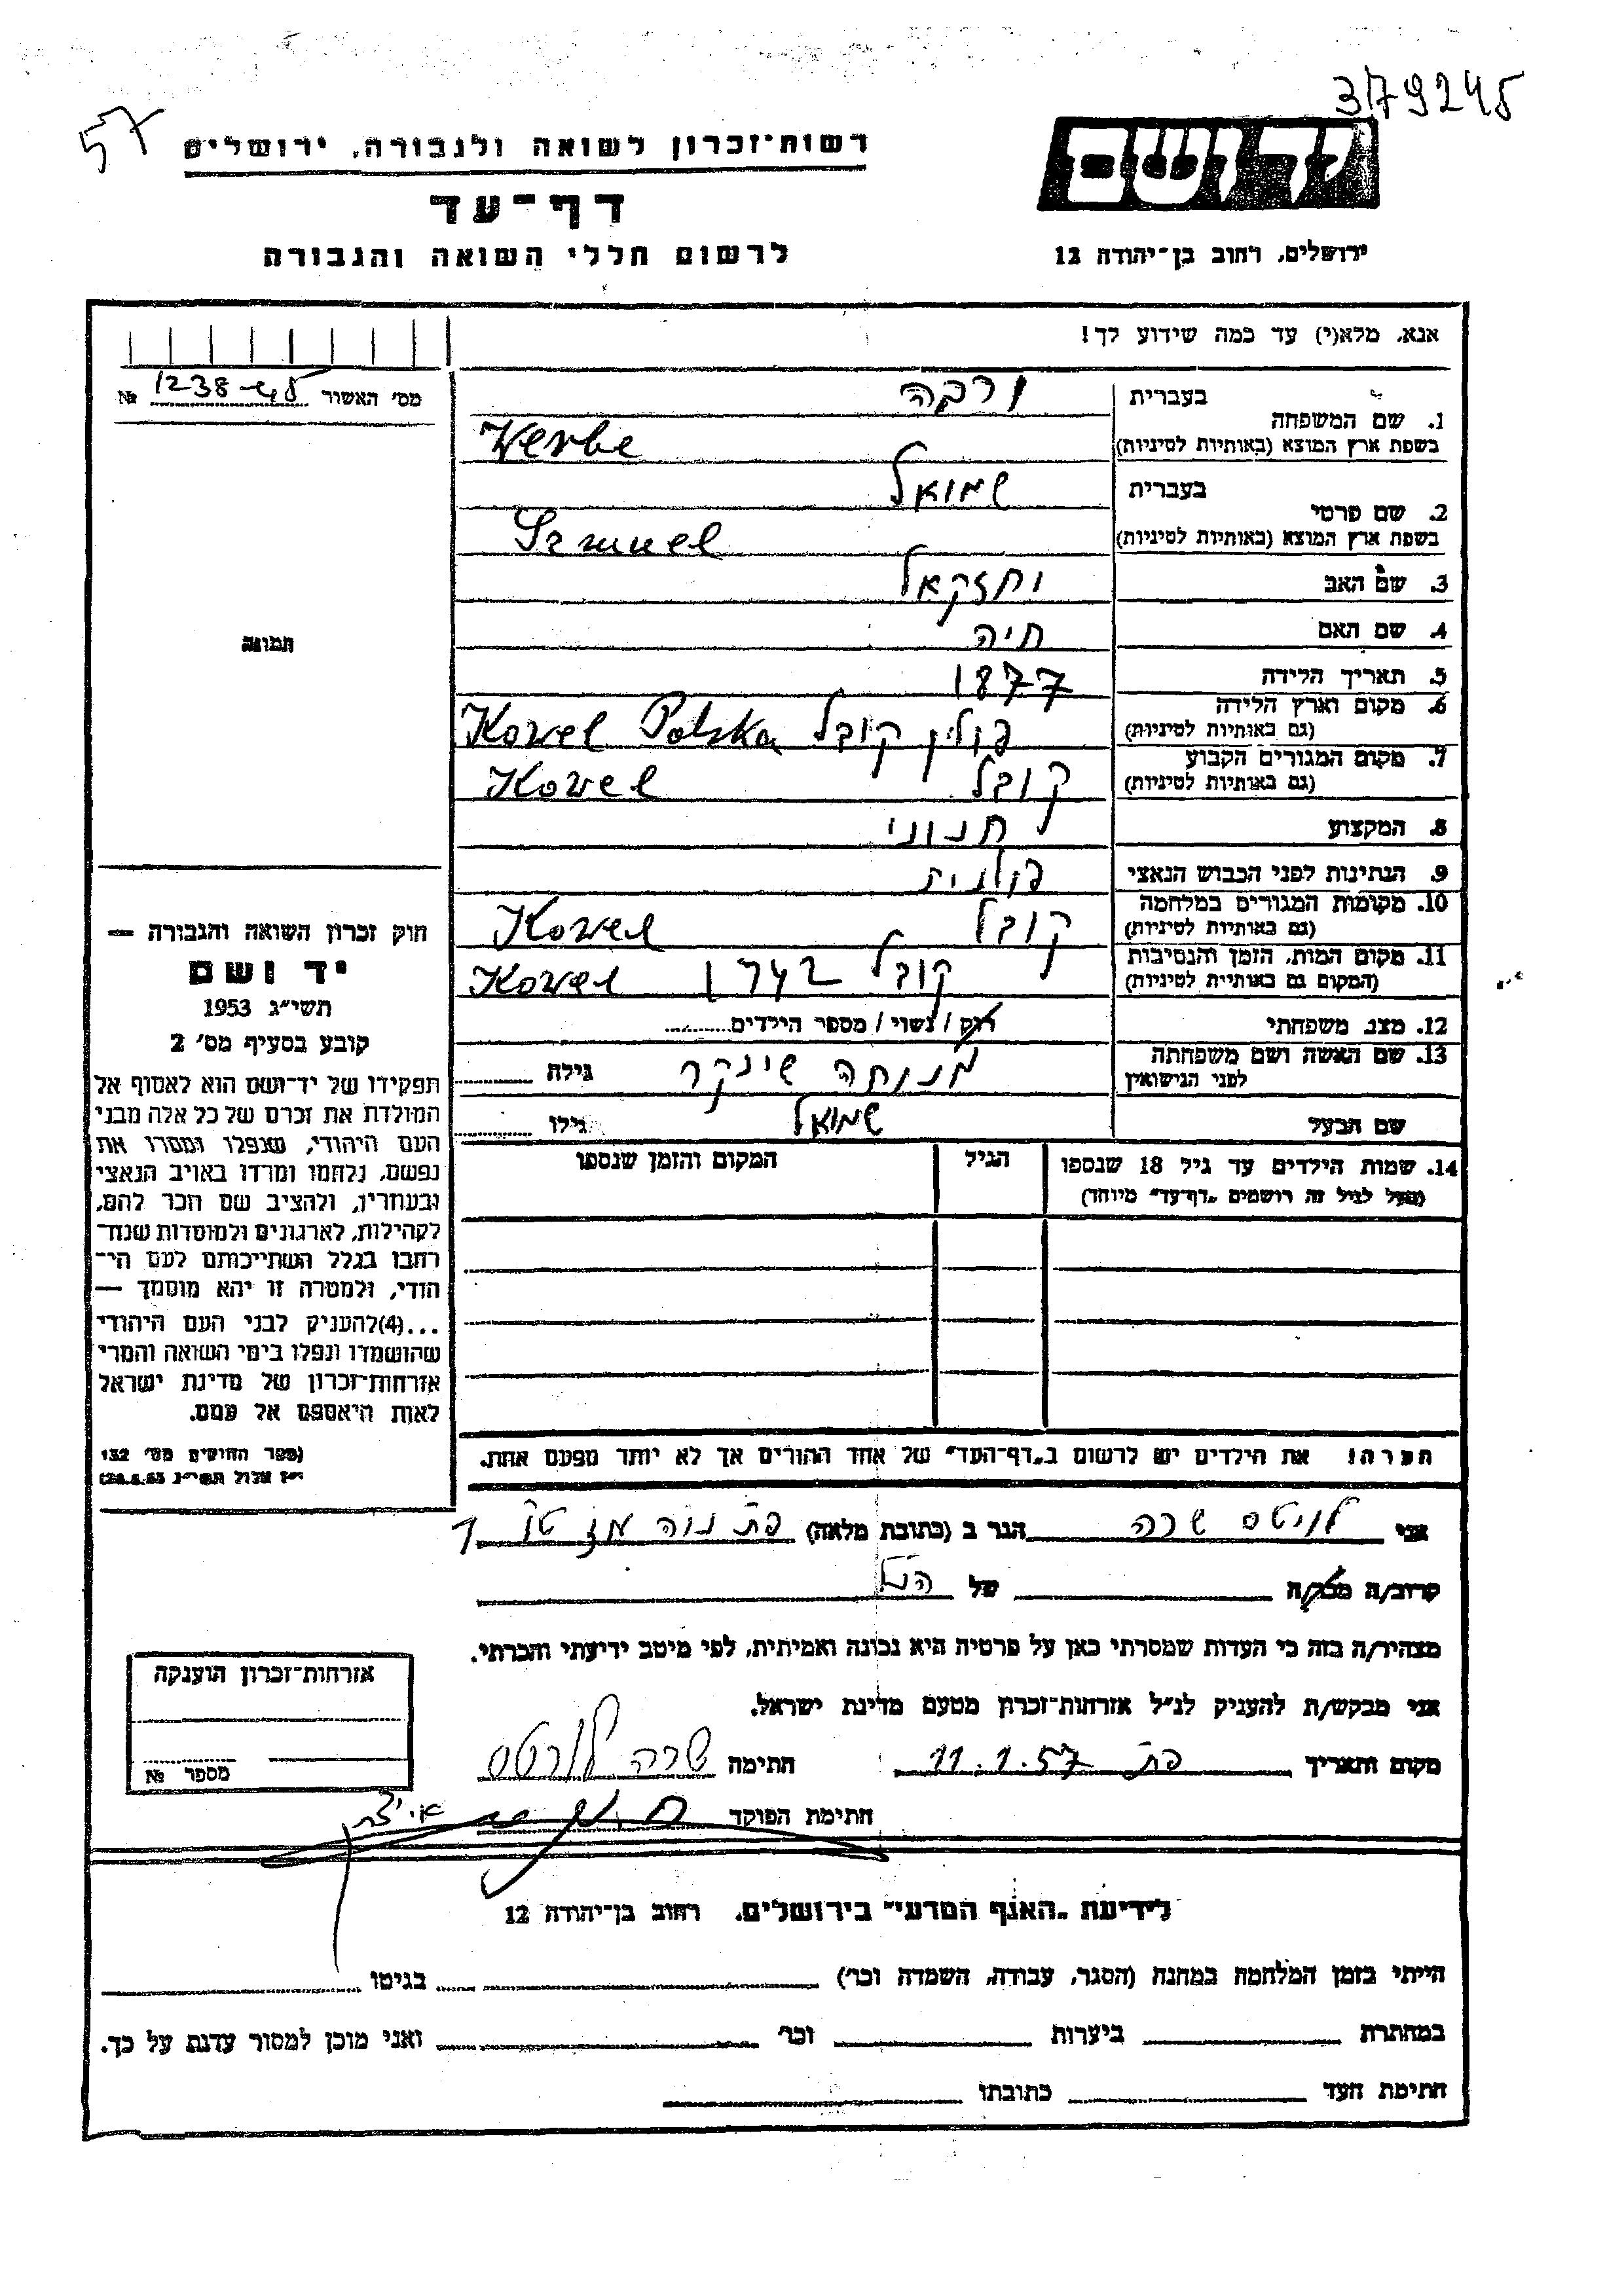 57
379245
רשות־זכרון לשואה ולגבורה, ירושלים
דף־עד
לרשום חללי השואה והגבורה
יד ושם
ירושלים, רחוב בן־יהודה 12
אנא, מלא(י) עד כמה שידוע לך!
מס׳ האשור 1238 №
1. שם המשפחה
בעברית ורבה
בשפת ארץ המוצא (באותיות לטיניות) Werbe
2. שם פרטי
בעברית שמואל
בשפת ארץ המוצא (באותיות לטיניות) Szmuel
3. שם האב יחזקאל
4. שם האם חיה
5. תאריך הלידה 1877
6. מקום וארץ הלידה (גם באותיות לטיניות) פולין קובל Kowel Polska
7. מקום המגורים הקבוע (גם באותיות לטיניות) קובל Kowel
8. המקצוע חנוני
9. הנתינות לפני הכבוש הנאצי פולנית
10. מקומות המגורים במלחמה (גם באותיות לטיניות) קובל Kowel
11. מקום המות, הזמן והנסיבות (המקום גם באותיות לטיניות) קובל 1942 Kowel
12. מצב משפחתי רוק / נשוי / מספר הילדים
13. שם האשה ושם משפחתה לפני הנישואין מנוחה שינקר גילה
שם הבעל שמואל גילו
14. שמות הילדים עד גיל 18 שנספו
(מעל לגיל זה רושמים „דף־עד״ מיוחד)
הגיל
המקום והזמן שנספו
תמונה
חוק זכרון השואה והגבורה —
יד ושם
תשי״ג 1953
קובע בסעיף מס׳ 2
תפקידו של יד־ושם הוא לאסוף אל
המולדת את זכרם של כל אלה מבני
העם היהודי, שנפלו ומסרו את
נפשם, נלחמו ומרדו באויב הנאצי
ובעוזריו, ולהציב שם וזכר להם,
לקהילות, לארגונים ולמוסדות שנח־
רבו בגלל השתייכותם לעם הי־
הודי, ולמטרה זו יהא מוסמך —
...(4)להעניק לבני העם היהודי
שהושמדו ונפלו בימי השואה והמרי
אזרחות־זכרון של מדינת ישראל
לאות היאספם אל עמם.
(ספר החוקים מס׳ 132
י״ז אלול תשי״ג 28.8.53)
הערה! את הילדים יש לרשום ב„דף־העד״ של אחד ההורים אך לא יותר מפעם אחת.
אני לויטס שרה הגר ב (כתובת מלאה) פת נוה מז
קרוב/ה מכר/ה של הנ״ל
מצהיר/ה בזה כי העדות שמסרתי כאן על פרטיה היא נכונה ואמיתית, לפי מיטב ידיעתי והכרתי.
אני מבקש/ת להעניק לנ״ל אזרחות־זכרון מטעם מדינת ישראל.
מקום ותאריך פת 11.1.57 חתימה שרה לויטס
חתימת הפוקד
אזרחות־זכרון הוענקה
מספר №
לידיעת „האגף המדעי״ בירושלים, רחוב בן־יהודה 12
הייתי בזמן המלחמה במחנה (הסגר, עבודה, השמדה וכו׳) בגיטו
במחתרת ביערות וכו׳ ואני מוכן למסור עדות על כך.
חתימת העד כתובתו